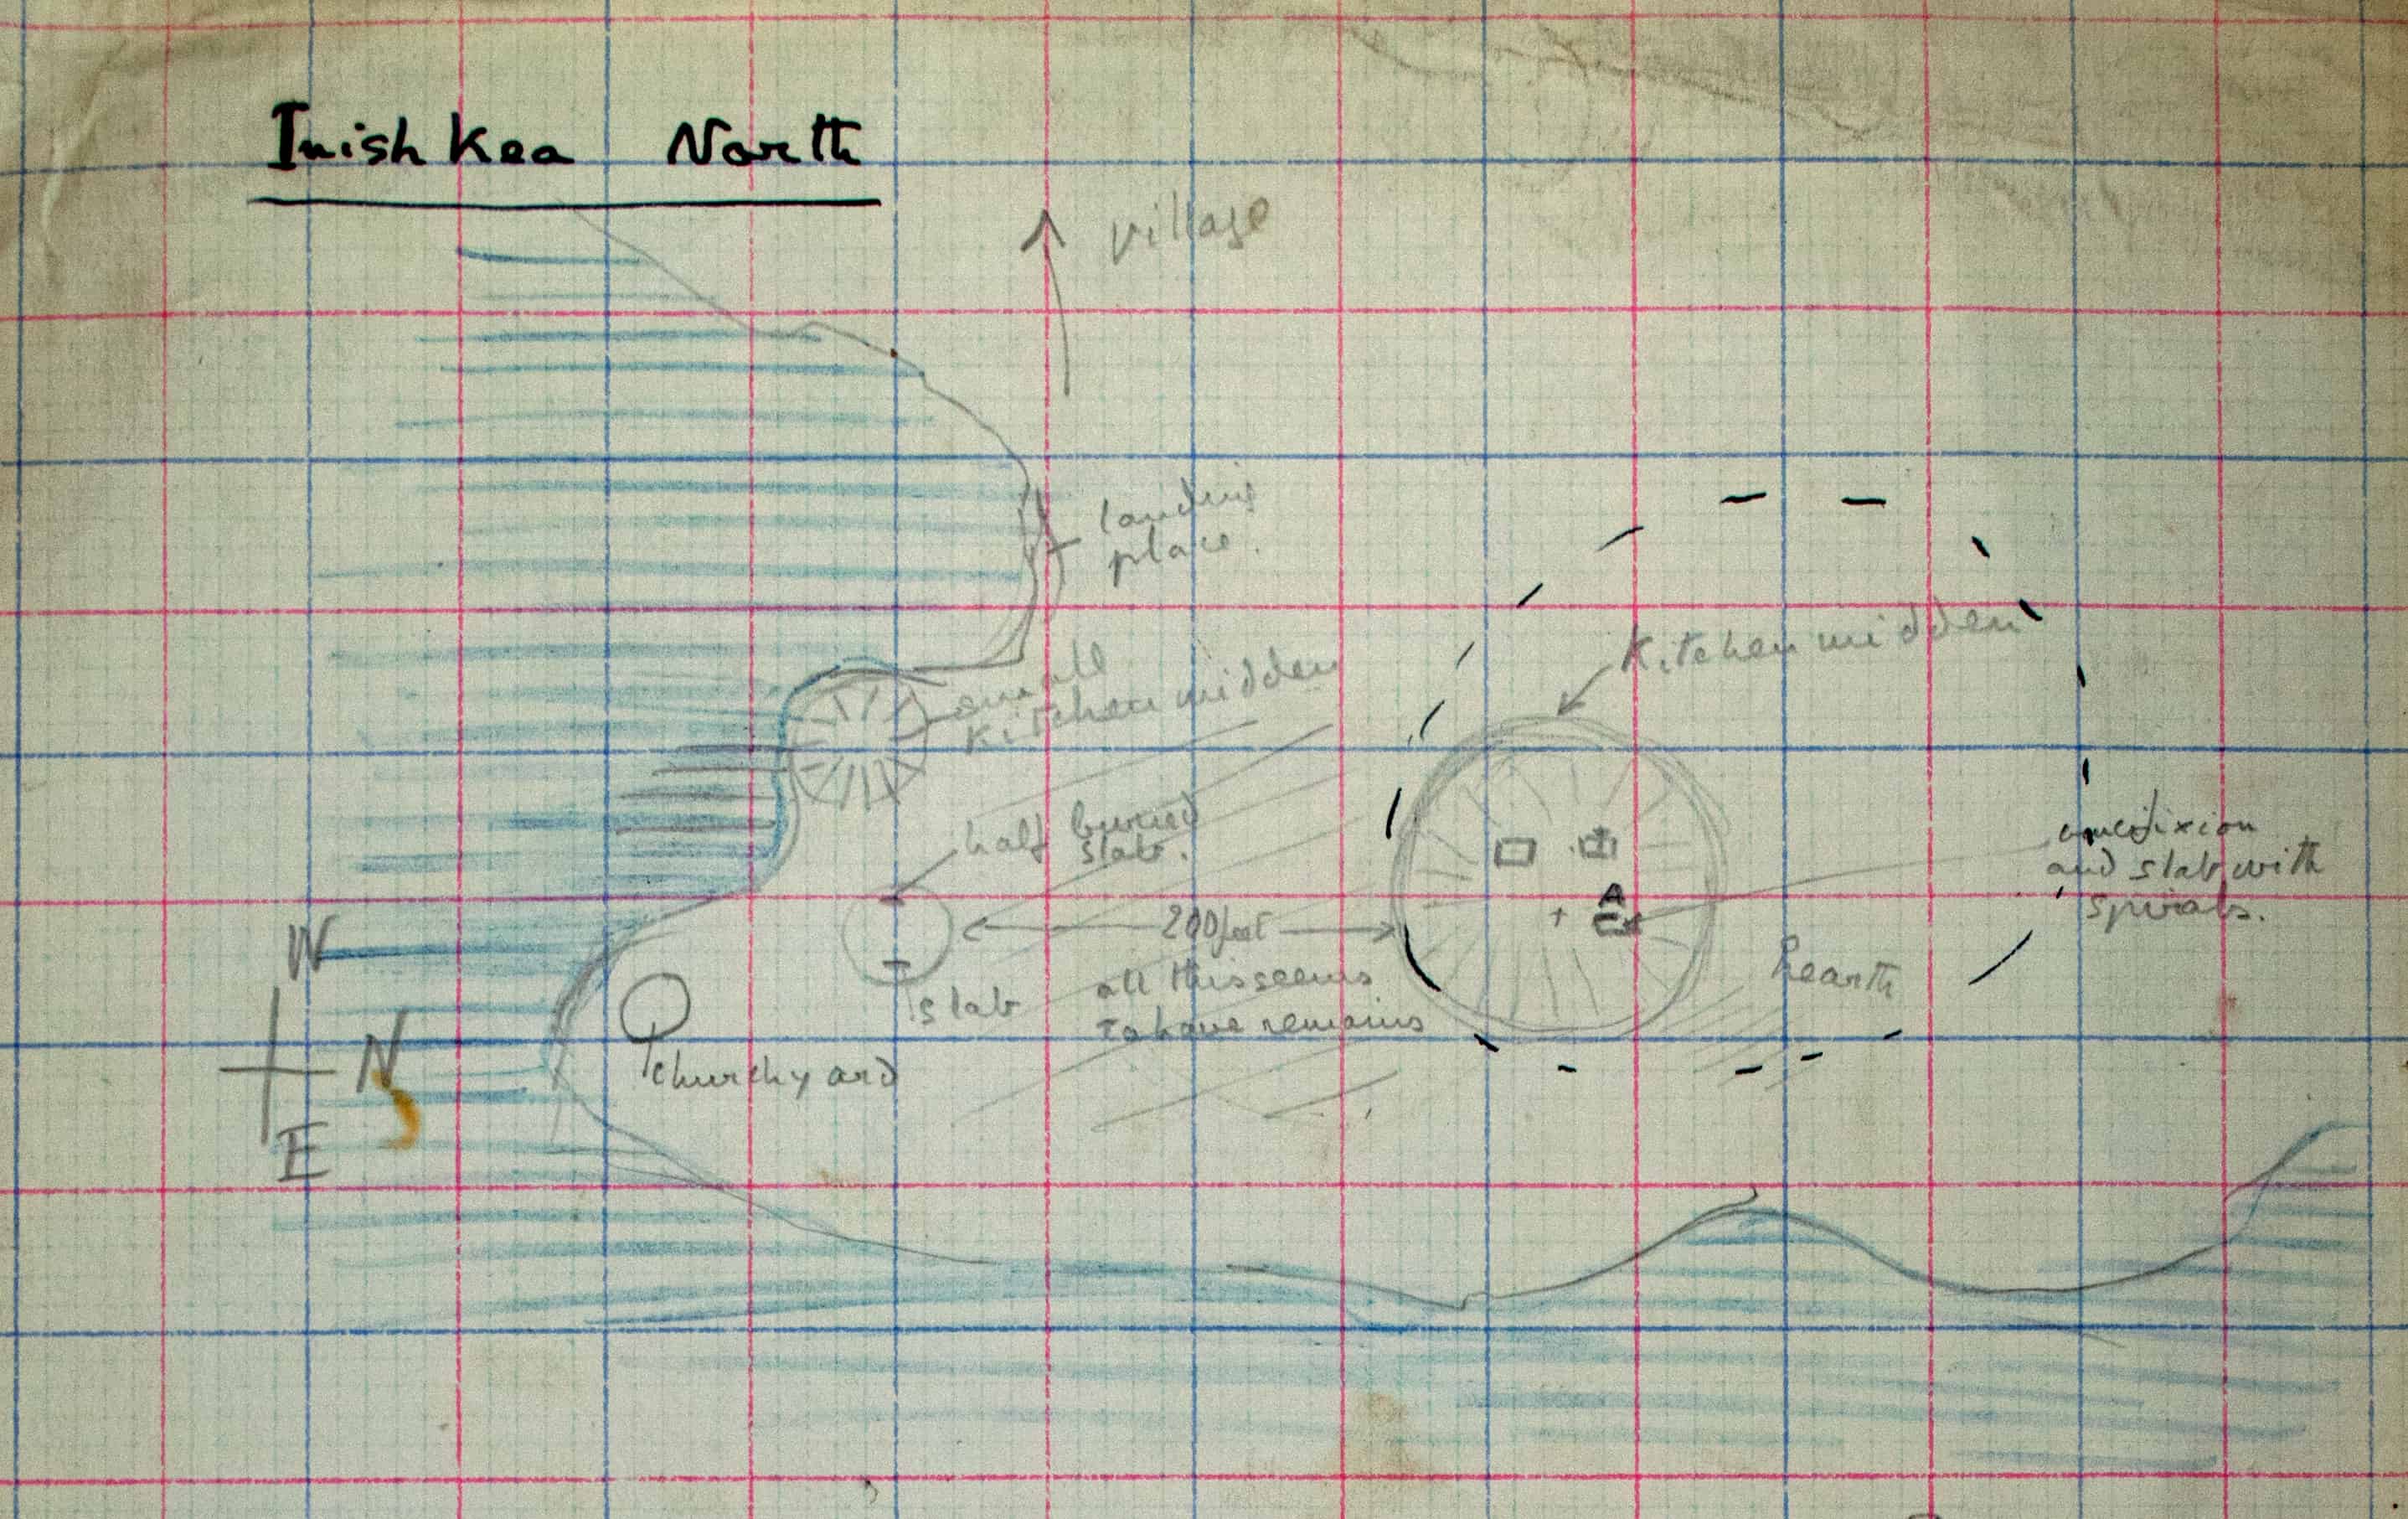 Inish Kea North
village
landing
place.
small
Kitchen midden
Kitchen midden
half buried
slab.
crucifixion
and slab with
spirals.
A
200 feet
W
N
E
slab
all this seems
to have remains
hearth
churchyard